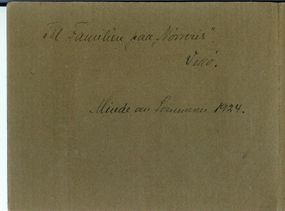 Til Familien paa "Nørrevis"
Fejø.
Minde om Sommeren 1924.